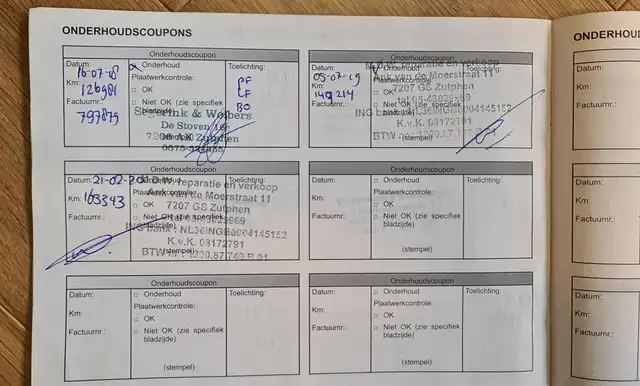 ONDERHOUDSCOUPONS
ONDERHOUDSCOUPONS
Onderhoudscoupon
Datum: 16-07-18
Onderhoud
Toelichting:
Km: 126981
Plaatwerkcontrole:
OK
PF
LF
BO
Factuurnr.: 797879
Niet OK (zie specifiek
bladzijde)
& Wolbers
De Stoven
Zutphen
(stempel)
Onderhoudscoupon
Datum: 05-07-19
Onderhoud
Km:
Plaatwerkcontrole:
OK
Factuurnr.:
Niet OK (zie specifiek
bladzijde)
reparatie en verkoop
Ank van de Moerstraat 11
7207 GS Zutphen
K.v.K. 08172791
(stempel)
Onderhoudscoupon
Datum: 21-02-20
Km: 103343
Plaatwerkcontrole:
OK
Factuurnr.:
Niet OK (zie specifiek
bladzijde)
reparatie en verkoop
Ank van de Moerstraat 11
7207 GS Zutphen
ING bank : NL36INGB0004145152
K.v.K. 08172791
(stempel)
Onderhoudscoupon
Datum:
Onderhoud
Toelichting:
Km:
Plaatwerkcontrole:
OK
Factuurnr.:
Niet OK (zie specifiek
bladzijde)
(stempel)
Onderhoudscoupon
Datum:
Onderhoud
Toelichting:
Km:
Plaatwerkcontrole:
OK
Factuurnr.:
Niet OK (zie specifiek
bladzijde)
(stempel)
Onderhoudscoupon
Datum:
Onderhoud
Toelichting:
Km:
Plaatwerkcontrole:
OK
Factuurnr.:
Niet OK (zie specifiek
bladzijde)
(stempel)
Datum:
Km:
Factuurnr.:
Datum:
Km:
Factuurnr.:
Datum:
Km:
Factuurnr.: